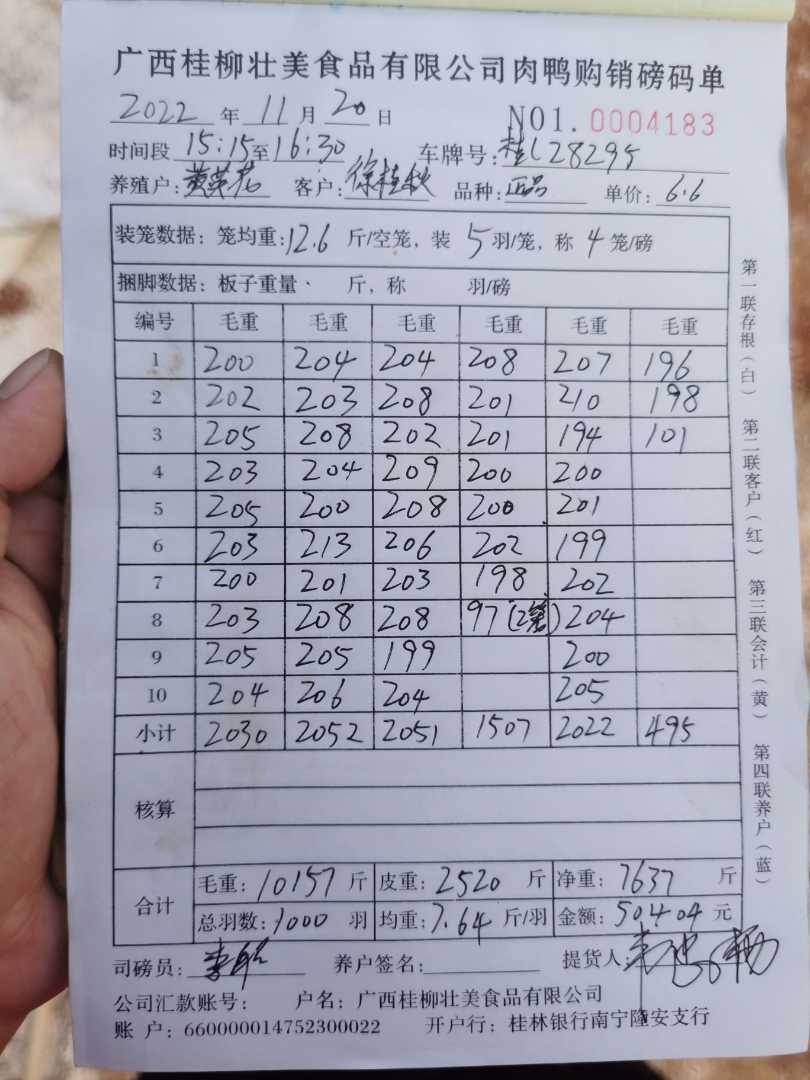 广西桂柳壮美食品有限公司肉鸭购销磅码单
2022 年 11 月 20 日 NO1. 0004183
时间段 15:15 至 16:30 车牌号: 桂L28295
养殖户: 黄英花 客户: 徐桂秋 品种: 正品 单价: 6.6
装笼数据: 笼均重: 12.6 斤/空笼, 装 5 羽/笼, 称 4 笼/磅
捆脚数据: 板子重量、 斤, 称 羽/磅
编号 毛重 毛重 毛重 毛重 毛重 毛重
1 200 204 204 208 207 196
2 202 203 208 201 210 198
3 205 208 202 201 194 101
4 203 204 209 200 200
5 205 200 208 200 201
6 203 213 206 202 199
7 200 201 203 198 202
8 203 208 208 97(2笼) 204
9 205 205 199 200
10 204 206 204 205
小计 2030 2052 2051 1507 2022 495
核算
合计
毛重: 10157 斤 皮重: 2520 斤 净重: 7637 斤
总羽数: 1000 羽 均重: 7.64 斤/羽 金额: 50404 元
司磅员: 养户签名: 提货人:
公司汇款账号: 户名: 广西桂柳壮美食品有限公司
账 户: 660000014752300022 开户行: 桂林银行南宁隆安支行
第一联存根(白) 第二联客户(红) 第三联会计(黄) 第四联养户(蓝)